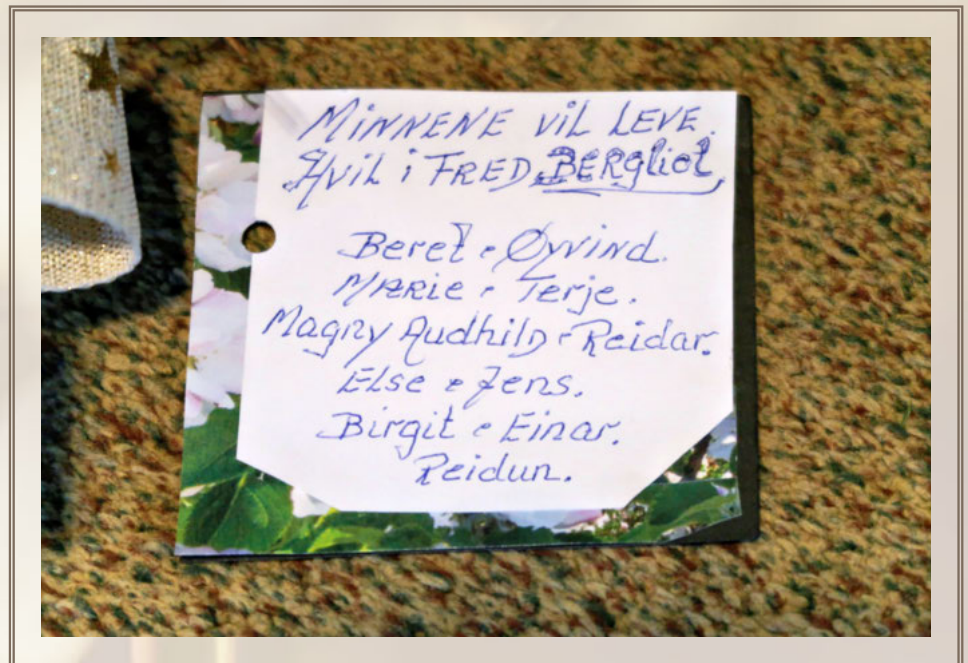 MINNENE VIL LEVE.
HVIL i FRED BERGLiot
Beret e Øyvind.
MARIE e Terje.
Magny Audhild e Reidar.
Else e Jens.
Birgit e Einar.
Reidun.